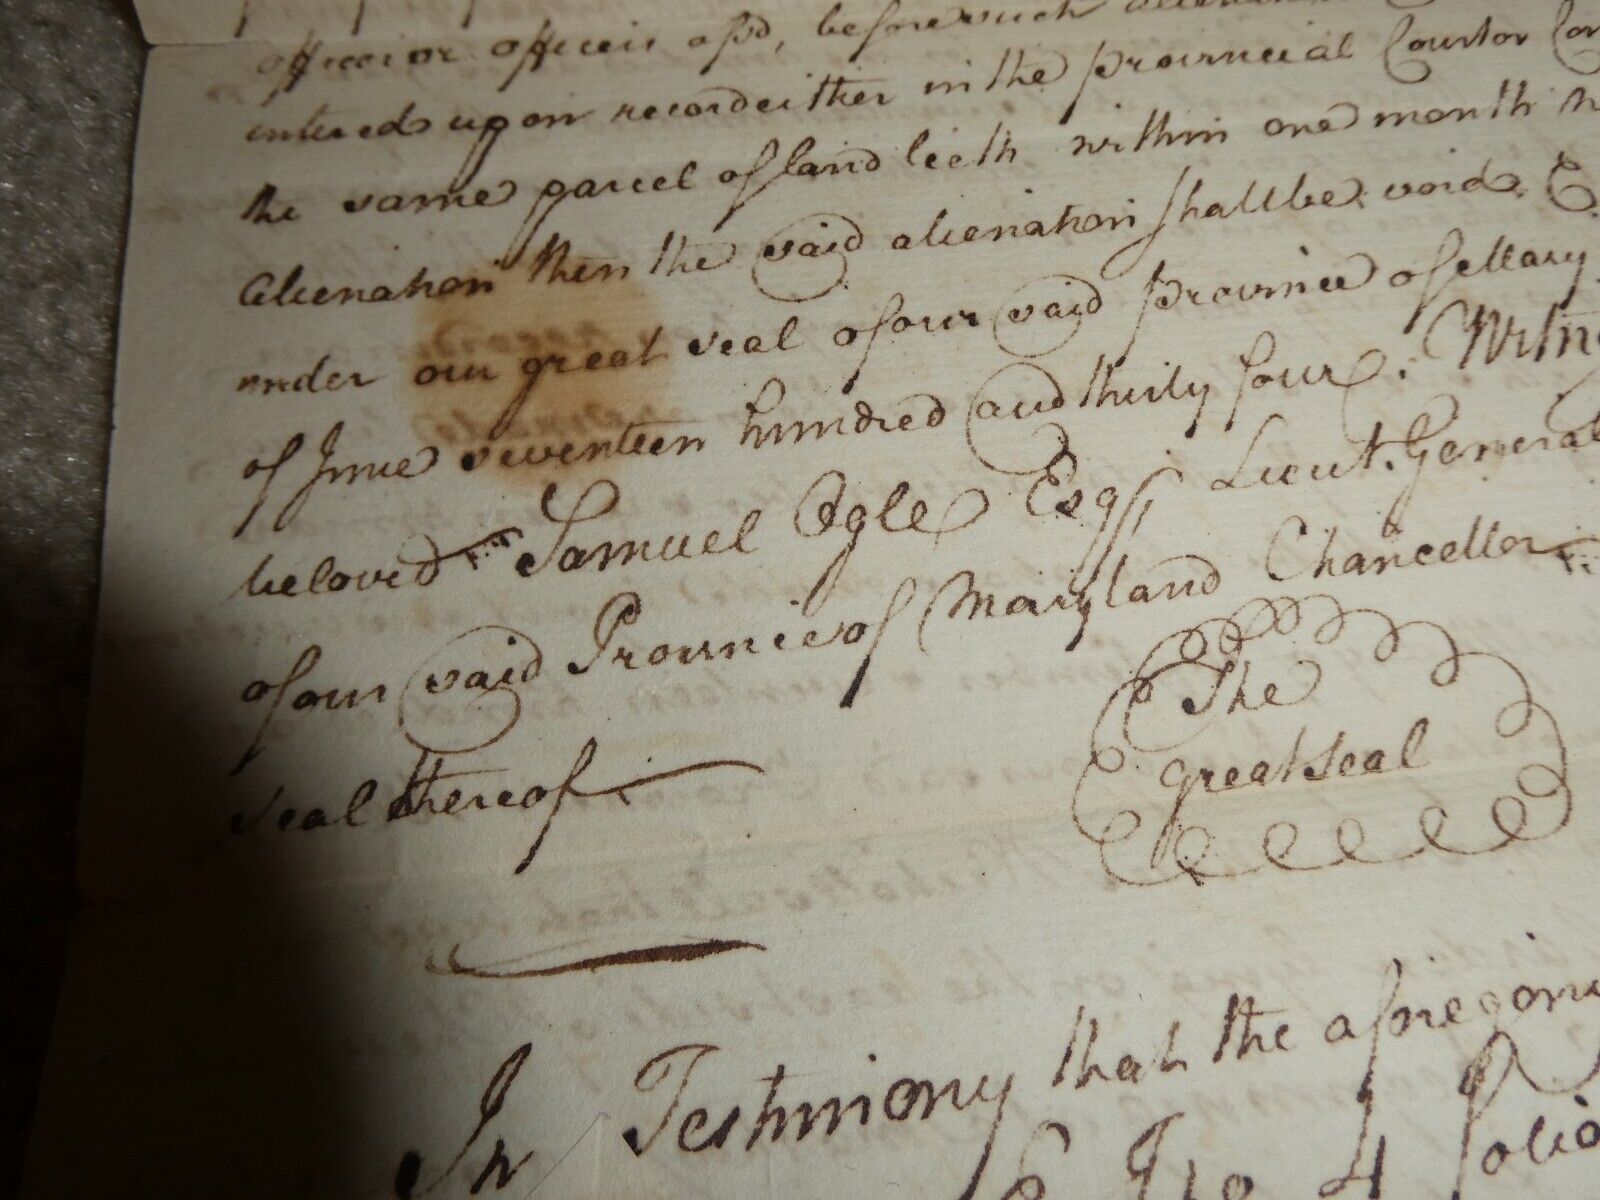 officer or officers afsd, before such alienation
entered upon record either in the provincial Court or Co
the same parcel of land lieth within one month n
Alienation then the said alienation shall be void. &
under our great seal of our said province of Mary
of June seventeen hundred and thirty four. Witn
beloved Samuel Ogle Esqr Lieut. General
of our said Province of Maryland Chancellor
seal thereof
The
great seal
In Testimony that the aforegoing
folio